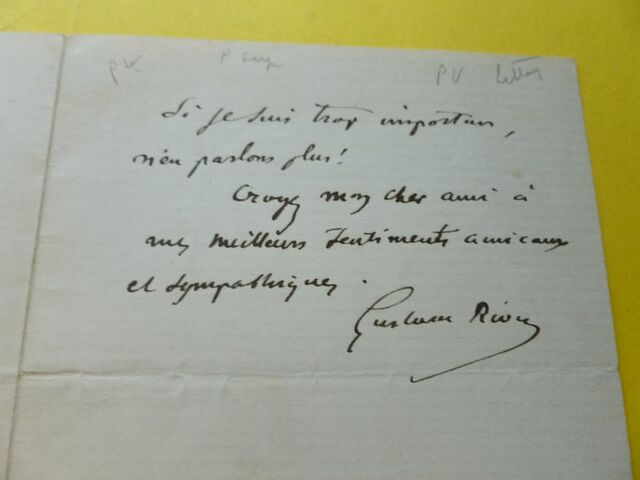 PV PV Letter
Si je suis trop importun,
n'en parlons plus!
Croyez mon cher ami à
mes meilleurs sentiments amicaux
et sympathiques.
Gustave Rivet